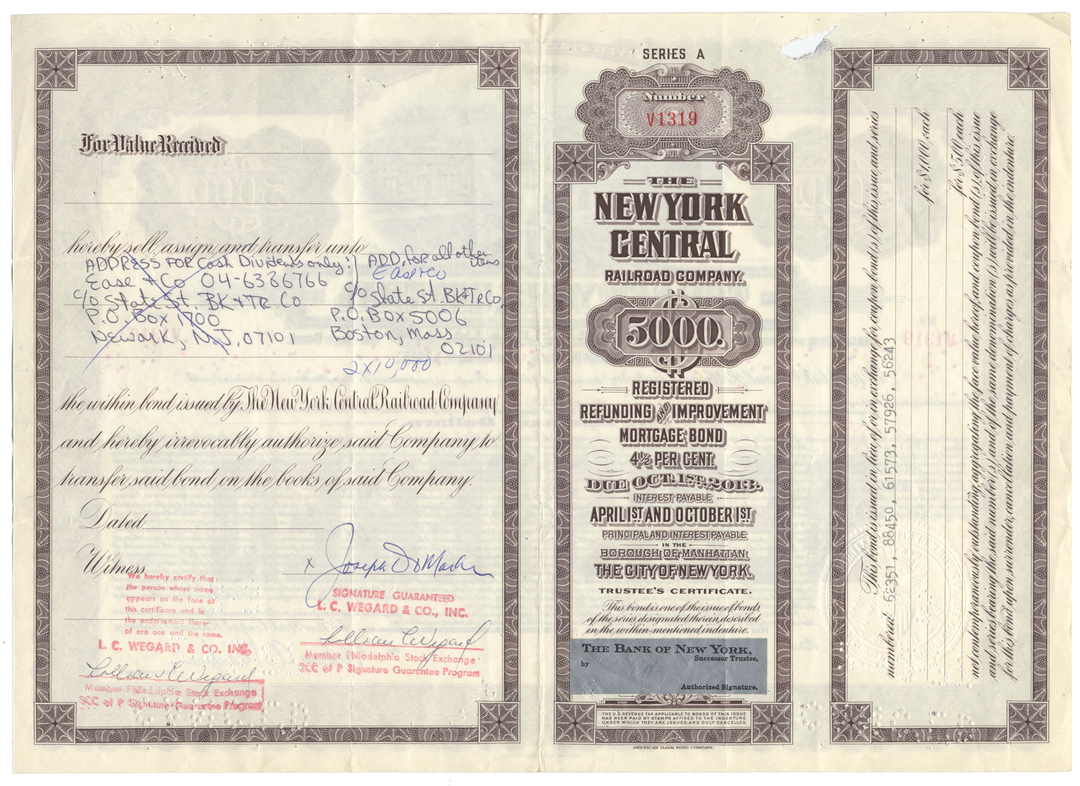 For Value Received
hereby sell, assign, and transfer unto
ADDRESS FOR Cash Dividends only:
Ease & Co 04-6386766
c/o State St. BK & TR Co
P.O. Box 1700
Newark, N.J. 07101
ADD. for all other
items
Ease & Co
c/o State St. BK & Tr Co.
P.O. Box 5006
Boston, Mass
02101
2x10,000
the within bond issued by The New York Central Railroad Company
and hereby irrevocably authorize said Company to
transfer said bond on the books of said Company.
Dated
Witness
We hereby certify that
the person whose name
appears on the face of
this certificate and in
the endorsement there-
of are one and the same.
L. C. WEGARD & CO. INC.
Member Philadelphia Stock Exchange
SCC of P Signature Guarantee Program
x Joseph
SIGNATURE GUARANTEED
L. C. WEGARD & CO., INC.
Member Philadelphia Stock Exchange
SCC of P Signature Guarantee Program
SERIES A
Number
V1319
THE
NEW YORK
CENTRAL
RAILROAD COMPANY.
$5000.
REGISTERED
REFUNDING AND IMPROVEMENT
MORTGAGE BOND
4½ PER CENT.
DUE OCT. 1ST, 2013.
INTEREST PAYABLE
APRIL 1ST AND OCTOBER 1ST
PRINCIPAL AND INTEREST PAYABLE
IN THE
BOROUGH OF MANHATTAN,
THE CITY OF NEW YORK.
TRUSTEE'S CERTIFICATE.
This bond is one of the issue of bonds
of the series designated therein, described
in the within-mentioned indenture.
THE BANK OF NEW YORK,
Successor Trustee,
by
Authorized Signature.
THE U.S. REVENUE TAX APPLICABLE TO BONDS OF THIS ISSUE
HAS BEEN PAID BY STAMPS AFFIXED TO THE INDENTURE
UNDER WHICH THEY ARE ISSUED, AND DULY CANCELLED.
AMERICAN BANK NOTE COMPANY.
This bond is issued in lieu of or in exchange for coupon bonds of this issue and series
numbered 62351, 88450, 61573, 57926, 56243
for $1,000 each
for $500 each
not contemporaneously outstanding, aggregating the face value hereof, and coupon bonds of this issue
and series bearing the said number(s) and of the same denomination(s) will be issued in exchange
for this bond upon surrender, cancellation and payment of charges as provided in the indenture.